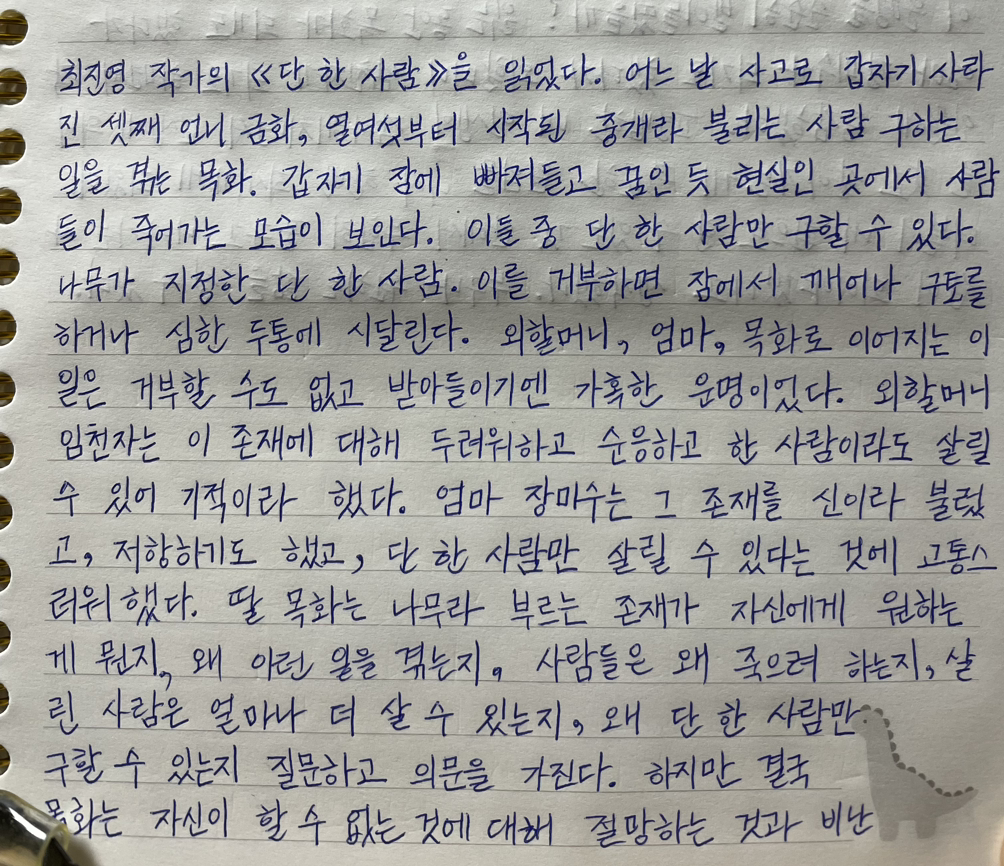 최진영 작가의 《단 한 사람》을 읽었다. 어느 날 사고로 갑자기 사라
진 셋째 언니 금화, 열여섯부터 시작된 중개라 불리는 사람 구하는
일을 겪는 목화. 갑자기 잠에 빠져들고 꿈인 듯 현실인 곳에서 사람
들이 죽어가는 모습이 보인다. 이들 중 단 한 사람만 구할 수 있다.
나무가 지정한 단 한 사람. 이를 거부하면 잠에서 깨어나 구토를
하거나 심한 두통에 시달린다. 외할머니, 엄마, 목화로 이어지는 이
일은 거부할 수도 없고 받아들이기엔 가혹한 운명이었다. 외할머니
임천자는 이 존재에 대해 두려워하고 순응하고 한 사람이라도 살릴
수 있어 기적이라 했다. 엄마 장미수는 그 존재를 신이라 불렀
고, 저항하기도 했고, 단 한 사람만 살릴 수 있다는 것에 고통스
러워했다. 딸 목화는 나무라 부르는 존재가 자신에게 원하는
게 뭔지, 왜 이런 일을 겪는지. 사람들은 왜 죽으려 하는지, 살
린 사람은 얼마나 더 살 수 있는지, 왜 단 한 사람만
구할 수 있는지 질문하고 의문을 가진다. 하지만 결국
목화는 자신이 할 수 없는 것에 대해 절망하는 것과 비난